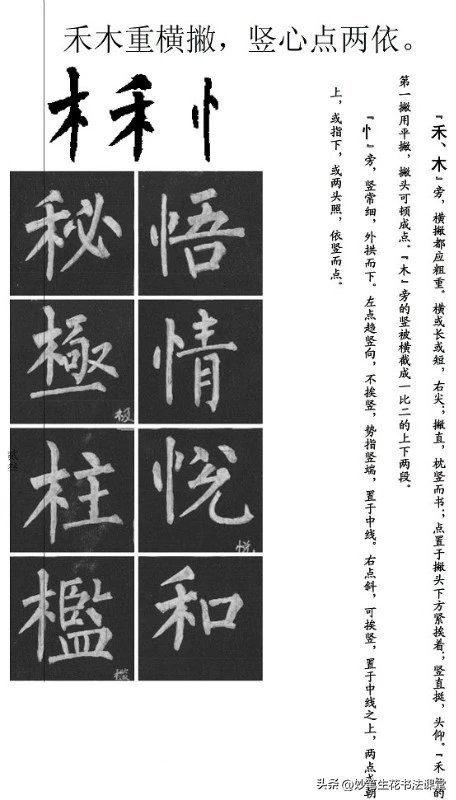 禾木重横撇，竖心点两依。
木 禾 忄
『禾、木』旁，横撇都应粗重。横或长或短，右尖；撇直，枕竖而书；点置于撇头下方紧挨着；竖直挺，头仰。『禾』的
第一撇用平撇，撇头可顿成点。『木』旁的竖被横截成一比二的上下两段。
『忄』旁，竖常细，外拱而下。左点趋竖向，不挨竖，势指竖端，置于中线。右点斜，可挨竖，置于中线之上，两点或朝
上，或指下，或两头照，依竖而点。
秘 悟
極 情
极
柱 悅
悦
檻 和
槛
头条 @妙笔生花书法课堂